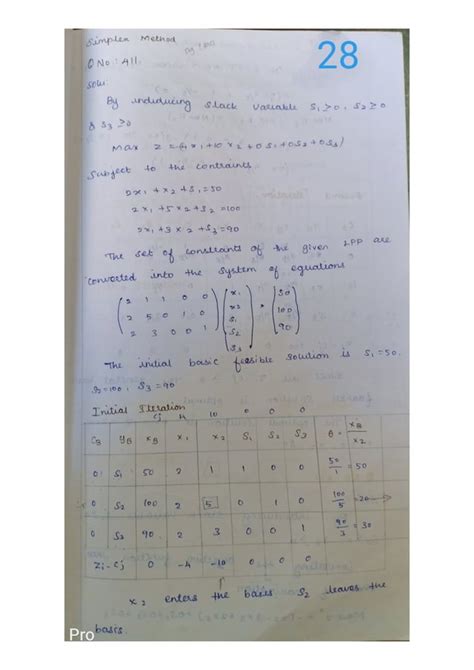 Simplex Method
28
Q No: 411.
Solu.
By inducing slack variable S1 ≥ 0, S2 ≥ 0
& S3 ≥ 0
Max Z = (4x1 + 10x2 + 0S1 + 0S2 + 0S3)
Subject to the contraints
2x1 + x2 + S1 = 50
2x1 + 5x2 + S2 = 100
2x1 + 3x2 + S3 = 90
The set of constraints of the given LPP are
converted into the system of equations
2 1 1 0 0 x1 50
2 5 0 1 0 x2 = 100
2 3 0 0 1 S1 90
S2
S3
The initial basic feasible solution is S1 = 50.
S2 = 100, S3 = 90
Initial Iteration
Cj 4 10 0 0 0
CB YB XB x1 x2 S1 S2 S3 θ = XB/x2
0 S1 50 2 1 1 0 0 50/1 = 50
0 S2 100 2 5 0 1 0 100/5 = 20 →
0 S3 90 2 3 0 0 1 90/3 = 30
Zj - Cj 0 -4 -10 0 0 0
↑
x2 enters the basis S2 leaves the
basis.
Pro